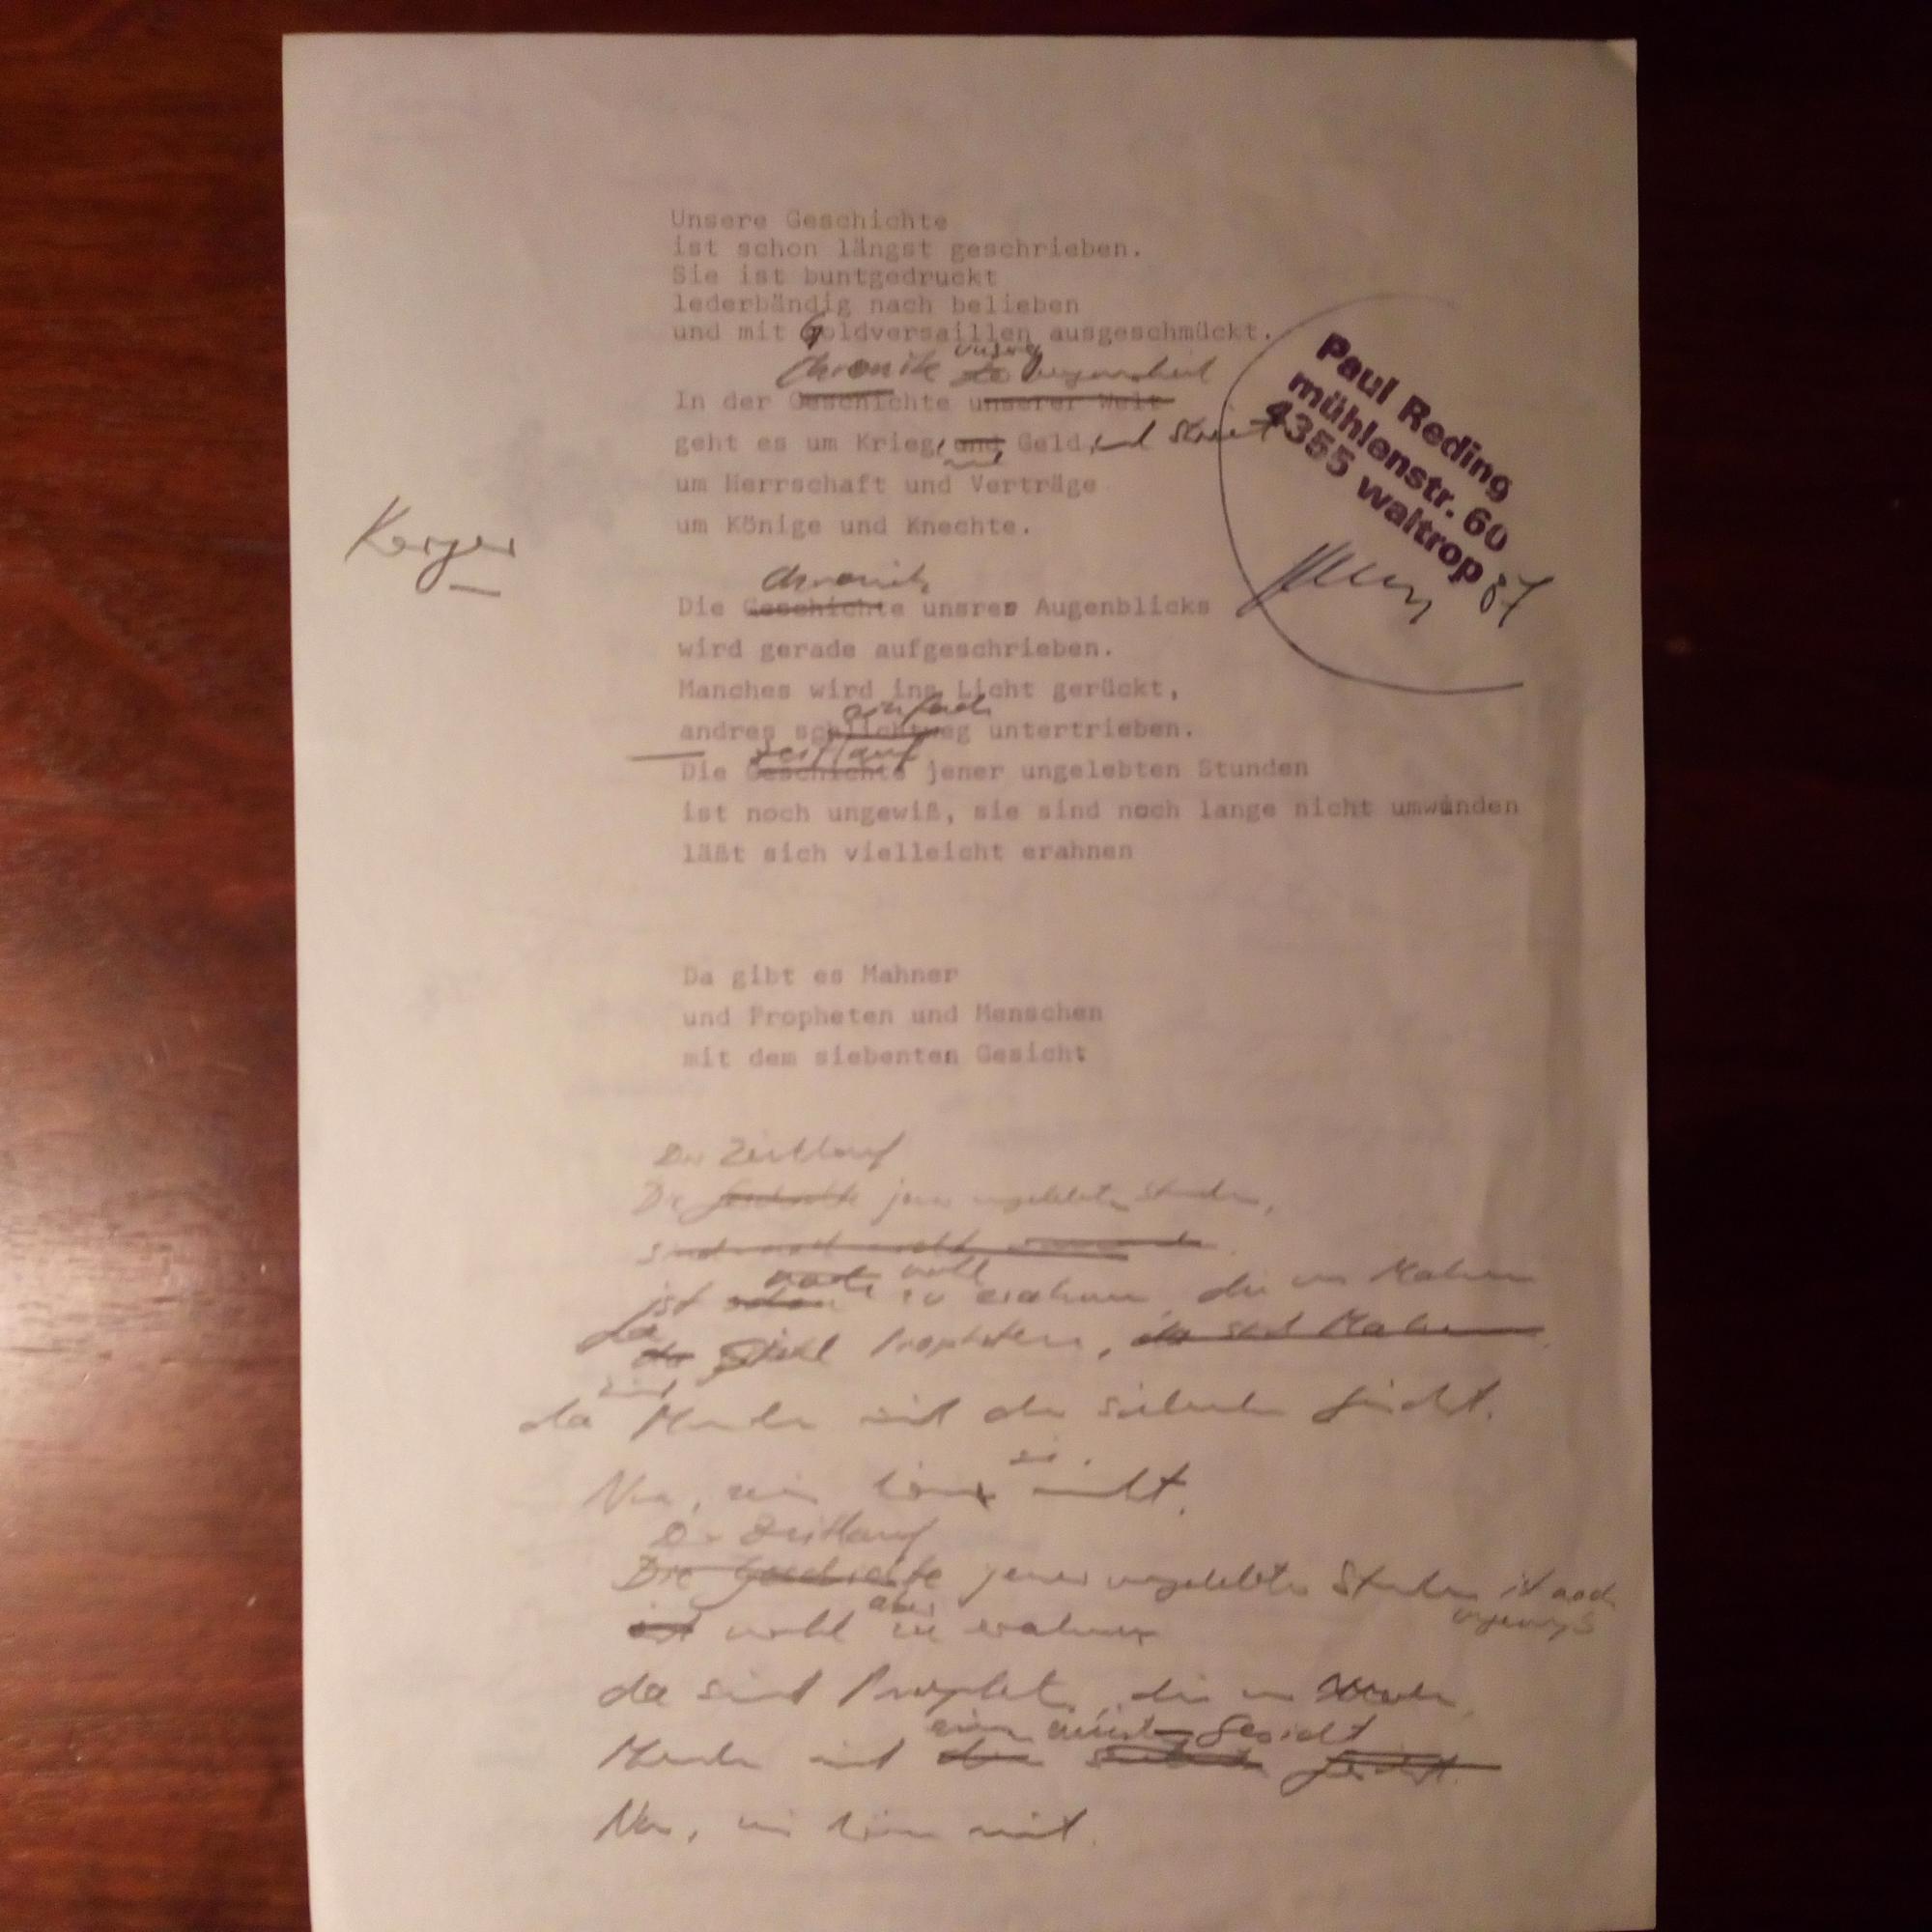 Unsere Geschichte
ist schon längst geschrieben.
Sie ist buntgedruckt
lederbändig nach belieben
und mit Goldversaillen ausgeschmückt.
Chronik unsrer
In der Geschichte unserer Welt
geht es um Krieg, und Geld, und Streit
um Herrschaft und Verträge
um Könige und Knechte.
Paul Reding
mühlenstr. 60
4355 waltrop
87
Chronik
Die Geschichte unsres Augenblicks
wird gerade aufgeschrieben.
Manches wird ins Licht gerückt,
einfach
andres schlichtweg untertrieben.
Zeitlauf
Die Geschichte jener ungelebten Stunden
ist noch ungewiß, sie sind noch lange nicht umwunden
läßt sich vielleicht erahnen
Da gibt es Mahner
und Propheten und Menschen
mit dem siebenten Gesicht
Der Zeitlauf
Die Geschichte jener ungelebten Stunden,
noch wohl
ist schon zu erahnen, die uns Mahnen
da
da sind Propheten, da sind Mahner
sind
da Menschen mit dem siebenten Gesicht.
sie
Nur, wir hören nicht.
Der Zeitlauf
Die Geschichte jener ungelebten Stunden ist noch
ungewiß
aber
ist wohl zu erahnen
da sind Propheten, die uns
Gesicht
Menschen mit dem siebenten Gesicht.
Nur, wir hören nicht.